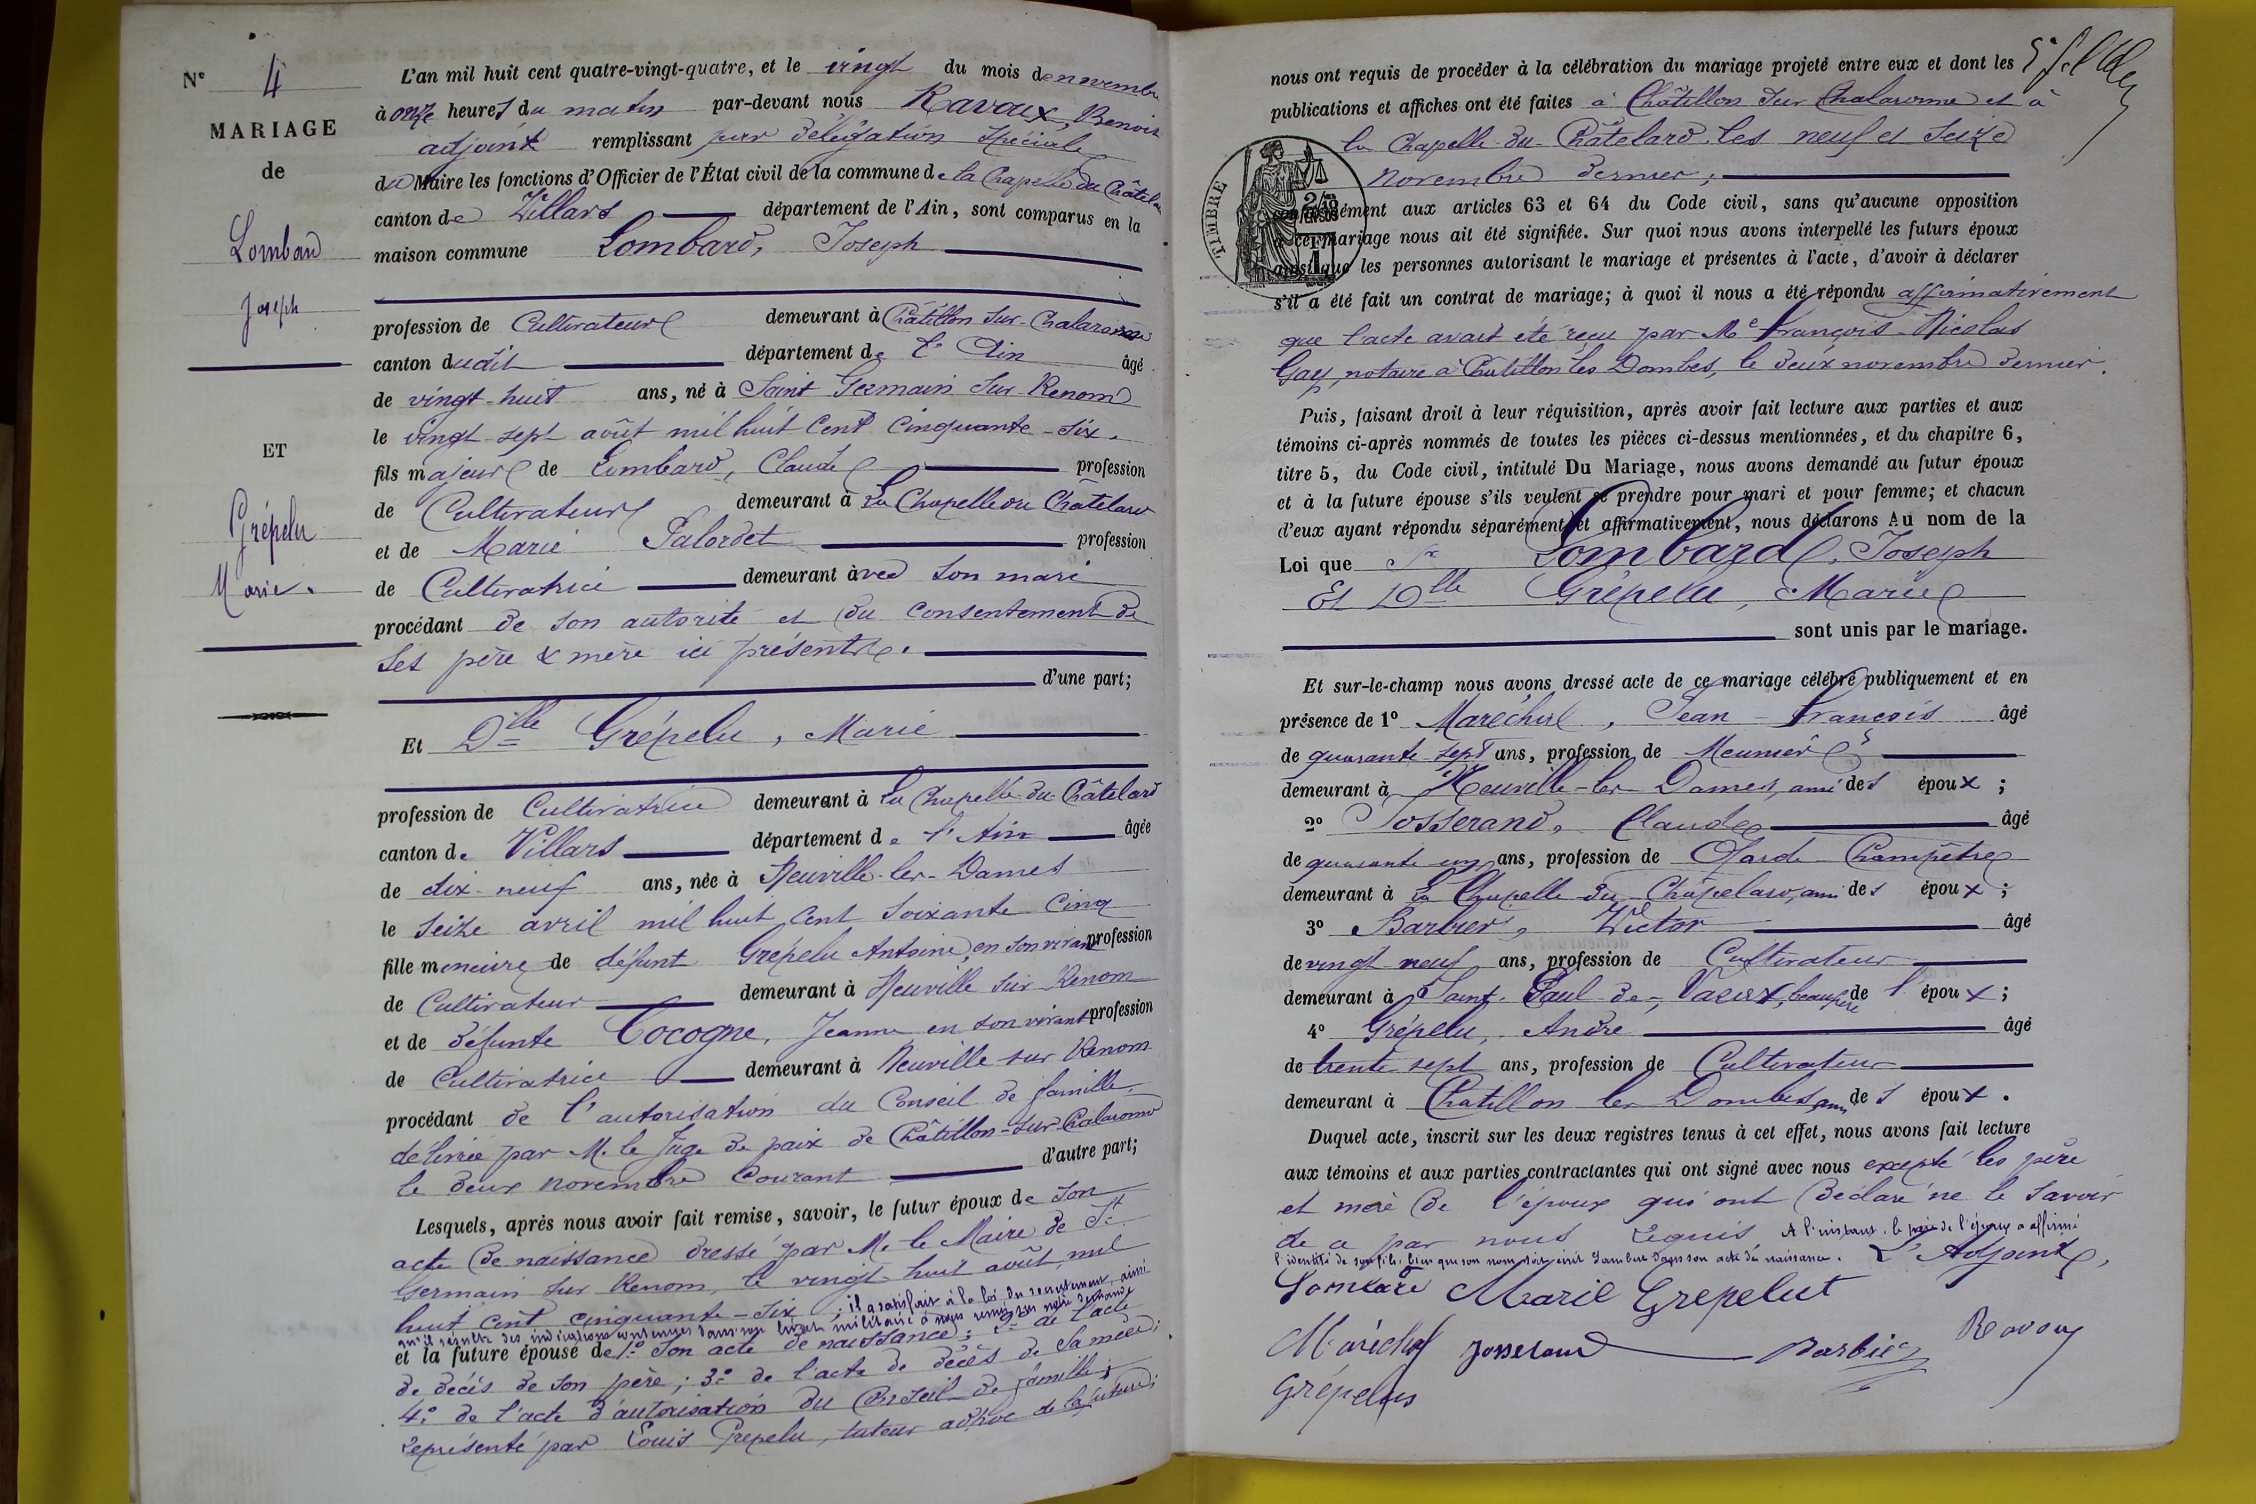 N° 4
MARIAGE
de
Lombard
Joseph
ET
Grépelu
Marie.
L'an mil huit cent quatre-vingt-quatre, et le vingt du mois de novembre
à onze heures du matin par-devant nous Ravoux, Benoit
adjoint remplissant par délégation spéciale
du Maire les fonctions d'Officier de l'État civil de la commune de la Chapelle du Châtelard
canton de Villars département de l'Ain, sont comparus en la
maison commune Lombard, Joseph
profession de Cultivateur demeurant à Châtillon sur Chalaronne
canton dudit département de l'Ain âgé
de vingt-huit ans, né à Saint Germain sur Renom
le vingt-sept août mil huit cent cinquante-six.
fils majeur de Lombard, Claude profession
de Cultivateur demeurant à La Chapelle du Châtelard
et de Marie Palordet profession
de Cultivatrice demeurant avec son mari
procédant de son autorité et du consentement de
ses père & mère ici présents.
d'une part;
Et Dlle Grépelu, Marie
profession de Cultivatrice demeurant à La Chapelle-du-Châtelard
canton de Villars département de l'Ain âgée
de dix-neuf ans, née à Neuville-les-Dames
le seize avril mil huit cent soixante cinq
fille mineure de défunt Grépelu Antoine, en son vivant profession
de Cultivateur demeurant à Neuville sur Renom
et de défunte Cocogne, Jeanne en son vivant profession
de Cultivatrice demeurant à Neuville sur Renom
procédant de l'autorisation du Conseil de famille,
délivrée par M. le Juge de paix de Châtillon-sur-Chalaronne
le deux novembre courant d'autre part;
Lesquels, après nous avoir fait remise, savoir, le futur époux de son
acte de naissance dressé par M. le Maire de St
Germain sur Renom, le vingt-huit août, mil
huit cent cinquante-six; il a satisfait à la loi du recrutement, ainsi
qu'il résulte des indications contenues dans son livret militaire à nous remis sur notre demande
et la future épouse de 1° son acte de naissance; 2° de l'acte
de décès de son père; 3° de l'acte de décès de sa mère;
4° de l'acte d'autorisation du Conseil de famille;
représenté par Louis Grépelu, tuteur adhoc de la future;
nous ont requis de procéder à la célébration du mariage projeté entre eux et dont les
publications et affiches ont été faites à Châtillon sur Chalaronne et à
la Chapelle-du-Châtelard, les neuf et seize
novembre dernier;
TIMBRE
conformément aux articles 63 et 64 du Code civil, sans qu'aucune opposition
à ce mariage nous ait été signifiée. Sur quoi nous avons interpellé les futurs époux
ainsi que les personnes autorisant le mariage et présentes à l'acte, d'avoir à déclarer
s'il a été fait un contrat de mariage; à quoi il nous a été répondu affirmativement
que l'acte avait été reçu par Me François-Nicolas
Gay, notaire à Châtillon les Dombes, le deux novembre dernier.
Puis, faisant droit à leur réquisition, après avoir fait lecture aux parties et aux
témoins ci-après nommés de toutes les pièces ci-dessus mentionnées, et du chapitre 6,
titre 5, du Code civil, intitulé Du Mariage, nous avons demandé au futur époux
et à la future épouse s'ils veulent se prendre pour mari et pour femme; et chacun
d'eux ayant répondu séparément et affirmativement, nous déclarons Au nom de la
Loi que Sr Lombard, Joseph
Et Dlle Grépelu, Marie
sont unis par le mariage.
Et sur-le-champ nous avons dressé acte de ce mariage célébré publiquement et en
présence de 1° Maréchal, Jean-François âgé
de quarante sept ans, profession de Meunier
demeurant à Neuville-les-Dames, ami des époux;
2° Josserand, Claude âgé
de quarante cinq ans, profession de Garde Champêtre
demeurant à La Chapelle-du-Châtelard, ami des époux;
3° Barbier, Victor âgé
de vingt neuf ans, profession de Cultivateur
demeurant à Saint-Paul-de-Varax, beau frère de l'époux;
4° Grépelu, André âgé
de trente sept ans, profession de Cultivateur
demeurant à Châtillon les Dombes, ami des époux.
Duquel acte, inscrit sur les deux registres tenus à cet effet, nous avons fait lecture
aux témoins et aux parties contractantes qui ont signé avec nous excepté les père
et mère de l'époux qui ont déclaré ne le savoir
de ce par nous requis. A l'instant, le père de l'époux a affirmé
l'identité de son fils, bien que son nom soit écrit Lambert dans son acte de naissance. L'Adjoint,
Lombard Marie Grepelut
Maréchal Josserand Barbier Ravoux
Grépelus